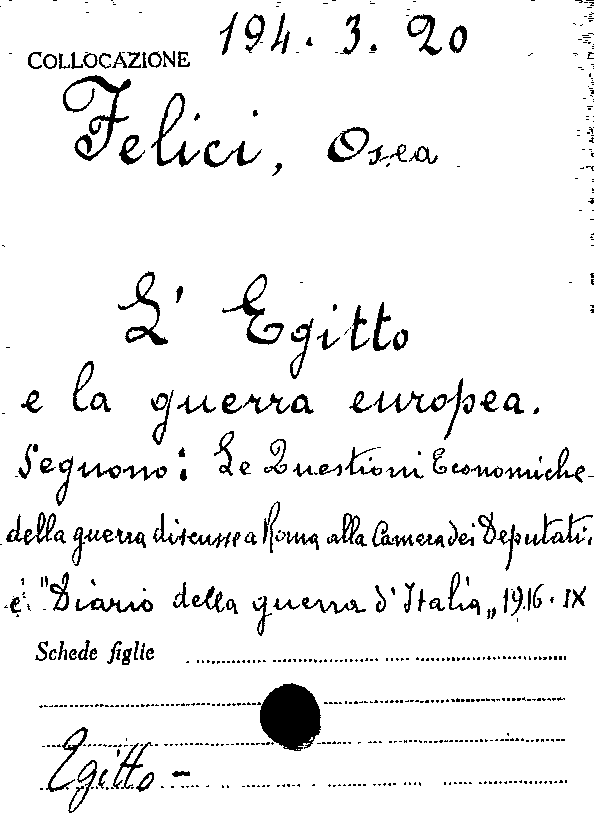 COLLOCAZIONE 194. 3. 20
Felici, Osea
L' Egitto
e la guerra europea.
Seguono: Le Questioni Economiche
della guerra discusse a Roma alla Camera dei Deputati.
e "Diario della guerra d'Italia„ 1916. IX
Schede figlie
Egitto -